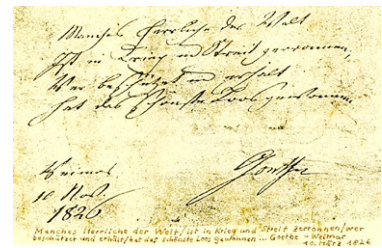 Manches Herrliche der Welt
Ist in Krieg und Streit zerronnen;
Wer beschützet und erhält
Hat das schönste Loos gewonnen.
Weimar Goethe
10
1826
Manches Herrliche der Welt/ist in Krieg und Streit zerronnen/wer
beschützet und erhält/hat das schönste Loos gewonnen ... Goethe – Weimar
10. März 1826